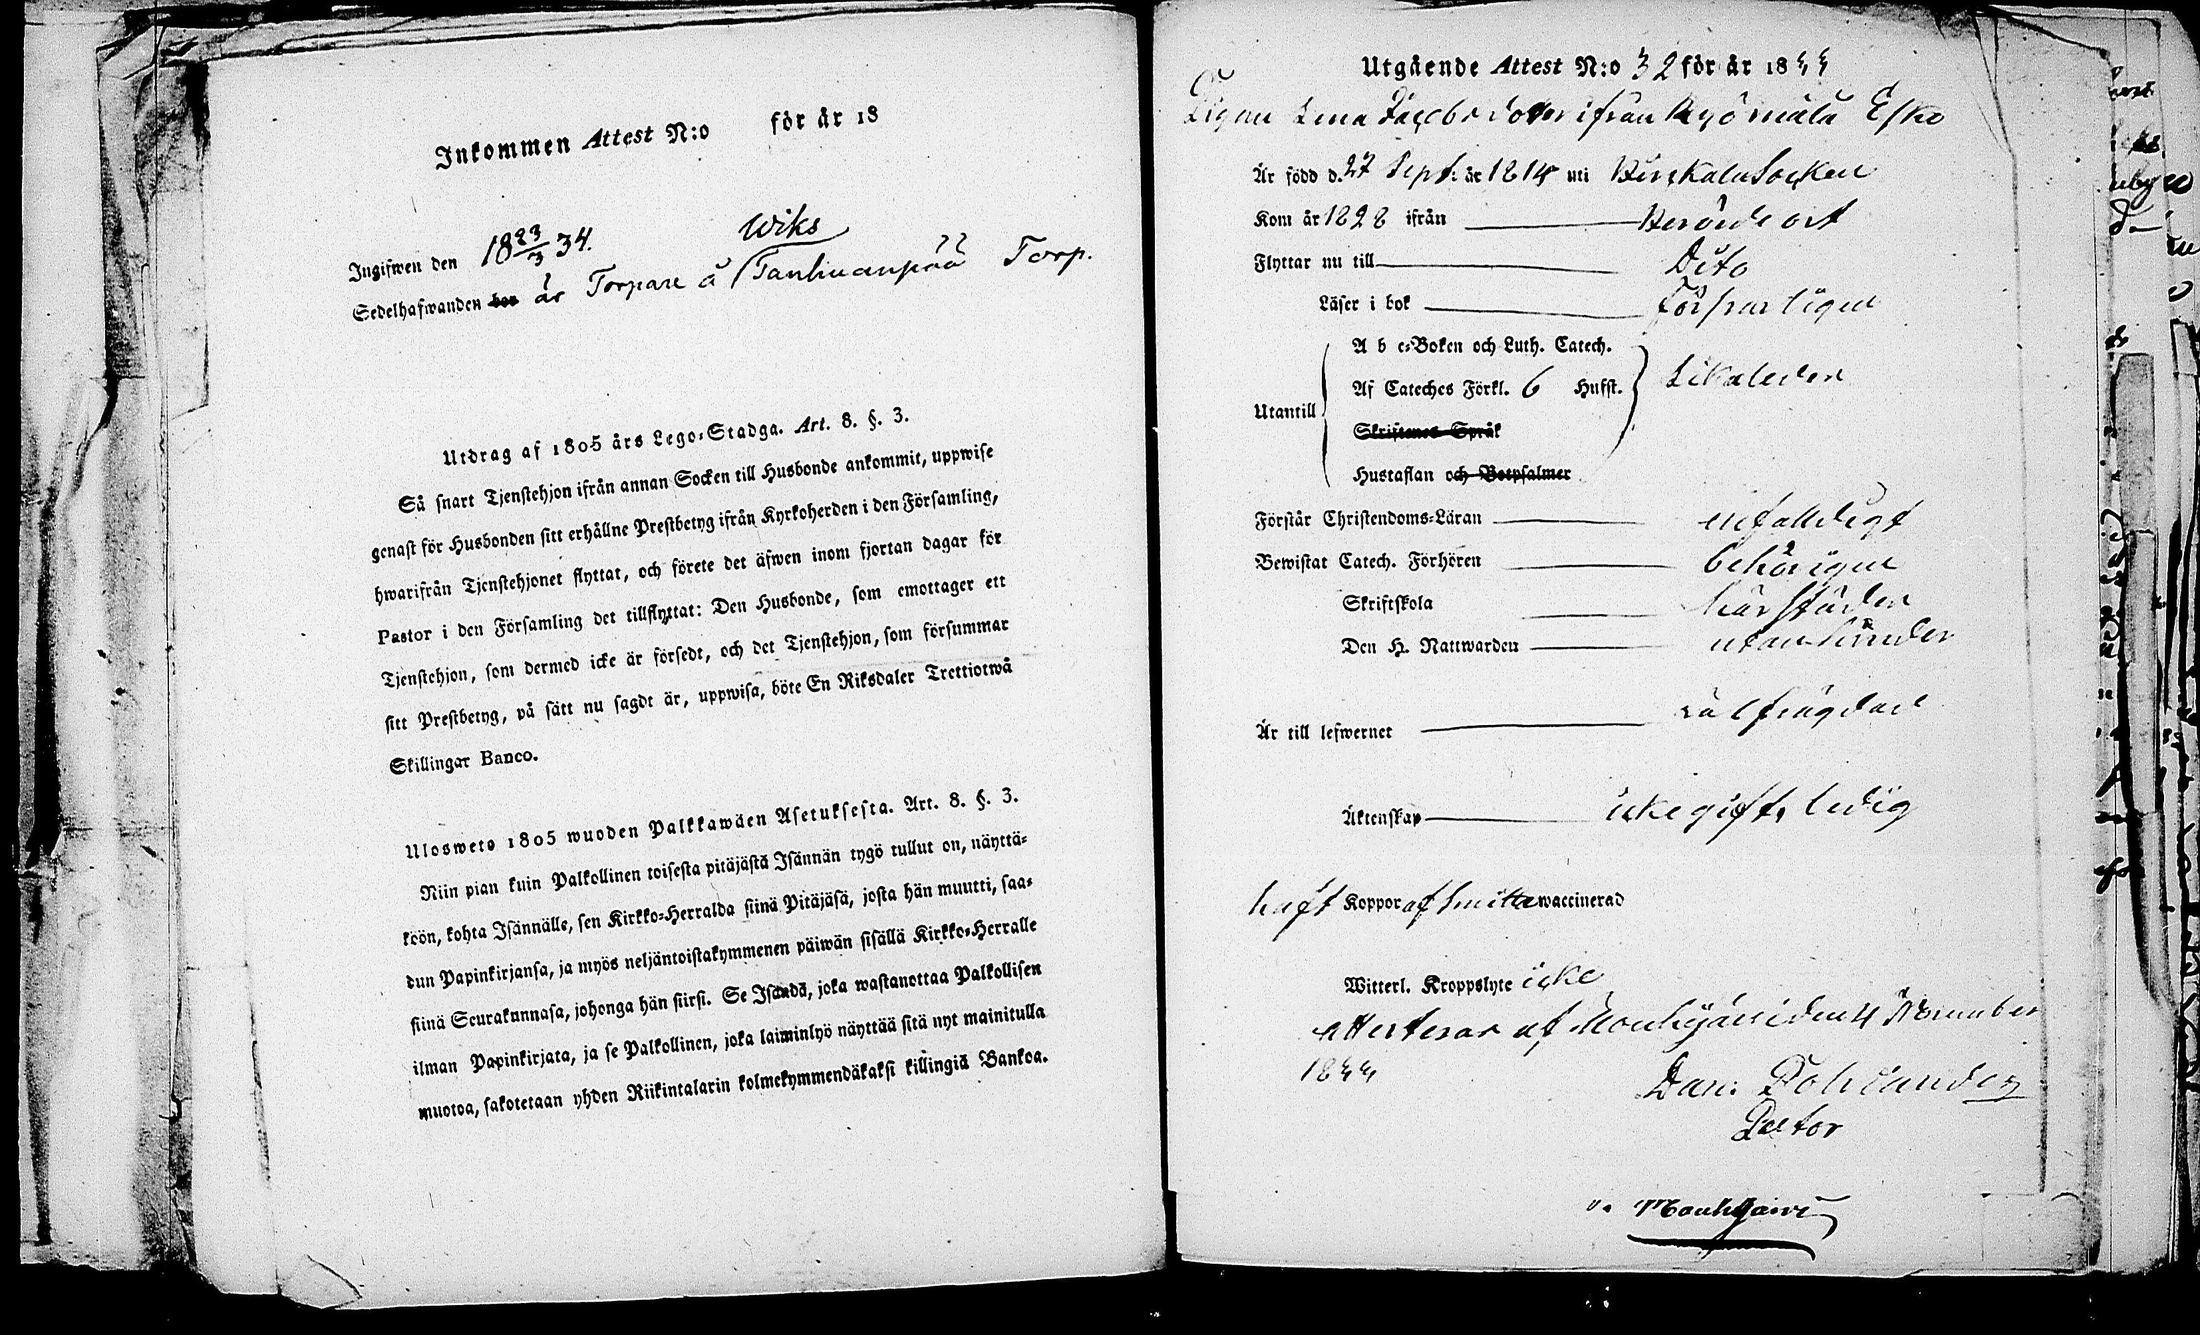 Inkommen Attest N:o för år 18
Ingifwen den 18 23/3 34.
Wiks
Sedelhafwanden bor är Torpare å Tanhuanpää Torp.
Utdrag af 1805 års Lego-Stadga. Art. 8. §. 3.
Så snart Tjenstehjon ifrån annan Socken till Husbonde ankommit, uppwise
genast för Husbonden sitt erhållne Prestbetyg ifrån Kyrkoherden i den Församling,
hwarifrån Tjenstehjonet flyttat, och förete det äfwen inom fjortan dagar för
Pastor i den Församling det tillflyttat: Den Husbonde, som emottager ett
Tjenstehjon, som dermed icke är försedt, och det Tjenstehjon, som försummar
sitt Prestbetyg, på sätt nu sagdt är, uppwisa, böte En Riksdaler Trettiotwå
Skillingar Banco.
Uloswete 1805 wuoden Palkkawäen Asetuksesta. Art. 8. §. 3.
Niin pian kuin Palkollinen toisesta pitäjästä Isännän tygö tullut on, näyttä-
köön, kohta Isännälle, sen Kirkko-Herralda siinä Pitäjäsä, josta hän muutti, saa-
dun Papinkirjansa, ja myös neljäntoistakymmenen päiwän sisällä Kirkko-Herralle
siinä Seurakunnasa, johonga hän siirsi. Se Isändä, joka wastanottaa Palkollisen
ilman Papinkirjata, ja se Palkollinen, joka laiminlyö näyttää sitä nyt mainitulla
muotoa, sakotetaan yhden Riikintalarin kolmekymmendäkaksi killingiä Bankoa.
Utgående Attest N:o 32 för år 1833
Pigan Lena Jacobsdotter ifrån Kyömälä Esko
Är född d. 27 Sept: år 1814 uti Kinkala Socken
Kom år 1828 ifrån berörde ort
Flyttar nu till Dito
Läser i bok försvarligen
A b c-Boken och Luth. Catech.
Af Cateches Förkl. 6 Hufst. Likaleden
Utantill
Skriftenes Språk
Hustaflan och Botpsalmer
Förstår Christendoms-Läran enfalldigt
Bewistat Catech. Förhören behörigen
Skriftskola härstädes
Den H. Nattwarden utan hinder
Är till lefwernet välfrägdad
Äktenskap icke gift, ledig
haft Koppor af smitta waccinerad
Witterl. Kroppslyte icke
attesteras af Mouhijärvi den 4 November
1833
Dan. Polviander
Pastor
i Mouhijärvi